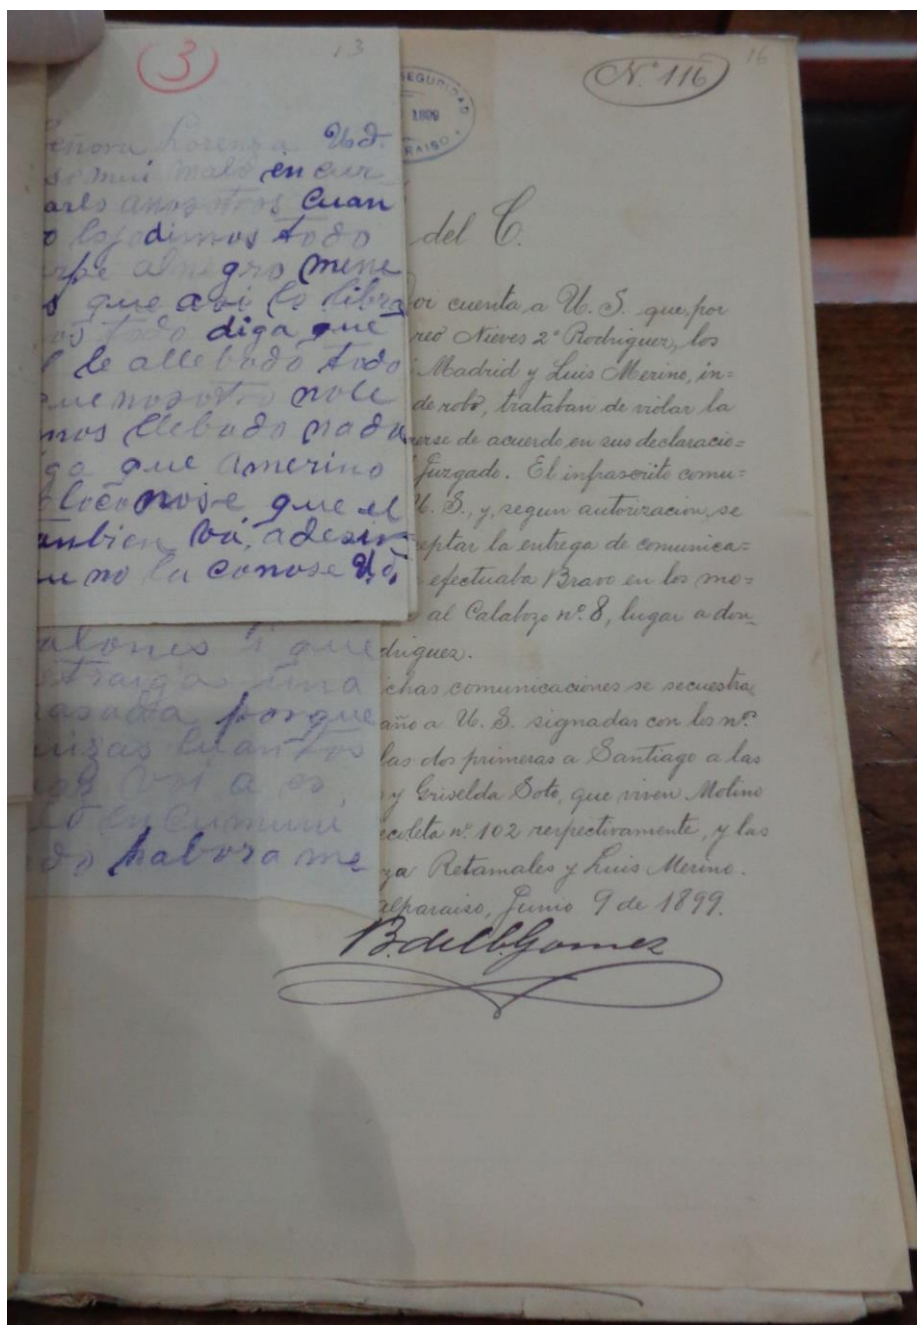 3
13
eñora Lorenza Usd.
so mui malo en cur
arls anosotros cuan
o lojodimos todo
urpe alnegro mene
s que asi lo libra
os todo diga que
l le allebado todo
ue nosotro nole
mos llebado nada
ga que amerino
loconose que el
anbien bá, adesir
u no la conose Ud,
alones i que
traiga una
asada porque
uisas cuantos
voi a es
en comuni
do habora me
16
Nº 116
SEGURIDAD
1899
RAISO
del C.
oi cuenta a U. S. que, por
reo Nieves 2º Rodriguez, los
Madrid y Luis Merino, in=
de robo, trataban de violar la
nerse de acuerdo en sus declaracio=
Juzgado. El infrascrito comu=
U. S., y, segun autorizacion, se
eptar la entrega de comunica=
efectuaba Bravo en los mo=
al Calabozo nº. 8, lugar a don
driguez.
chas comunicaciones se secuestra
año a U. S. signadas con los nº
las dos primeras a Santiago a las
y Griselda Soto, que viven Molino
coleta nº. 102 respectivamente, y las
za Retamales y Luis Merino.
alparaiso, Junio 9 de 1899.
B. del C. Gomez